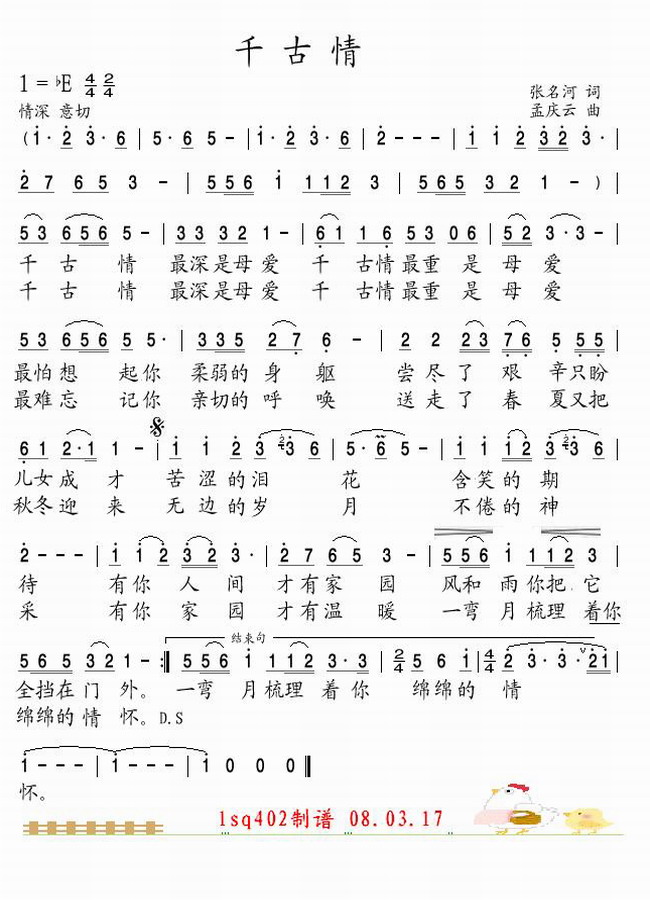 千古情
1 = ♭E 4/4 2/4
张名河 词
情深 意切
孟庆云 曲
(1· 2 3· 6 | 5· 6 5 - | 1· 2 3· 6 | 2 - - - | 1 1 2 3 2 3·
2 7 6 5 3 - | 5 5 6 1 1 1 2 3 | 5 6 5 3 2 1 - ) |
5 3 6 5 6 5 - | 3 3 3 2 1 - | 6 1 1 6 5 3 0 6 | 5 2 3·3 - |
千 古 情 最深是母爱 千 古情最重 是 母 爱
千 古 情 最深是母爱 千 古情最重 是 母 爱
5 3 6 5 6 5 5· | 3 3 5 2·7 6 - | 2 2 2 3 7 6 5 5 5 |
最怕想 起你 柔弱的身 躯 尝尽了 艰 辛只盼
最难忘 记你 亲切的呼 唤 送走了 春 夏又把
6 1 2·1 1 - 1 1 2 3 2 3 6 | 5·6 5 - | 1 1 1 2 3 2 3 6 |
儿女成 才 苦 涩的泪 花 含笑的 期
秋冬迎 来 无 边的岁 月 不倦的 神
2 - - - | 1 1 2 3 2 3· | 2 7 6 5 3 - | 5 5 6 1 1 1 2 3 |
待 有你 人 间 才有家 园 风和 雨你把 它
采 有你 家 园 才有温 暖 一弯 月梳理 着你
结束句
5 6 5 3 2 1 - :| 5 5 6 1 1 1 2 3·3 | 2/4 5 6 1 | 4/4 2 3·3· 2 1 |
全挡在门 外。 一弯 月梳理 着你 绵绵的 情
绵绵的情 怀。D.S
1 - - - | 1 - - - | 1 0 0 0 ||
怀。
lsq402制谱 08.03.17